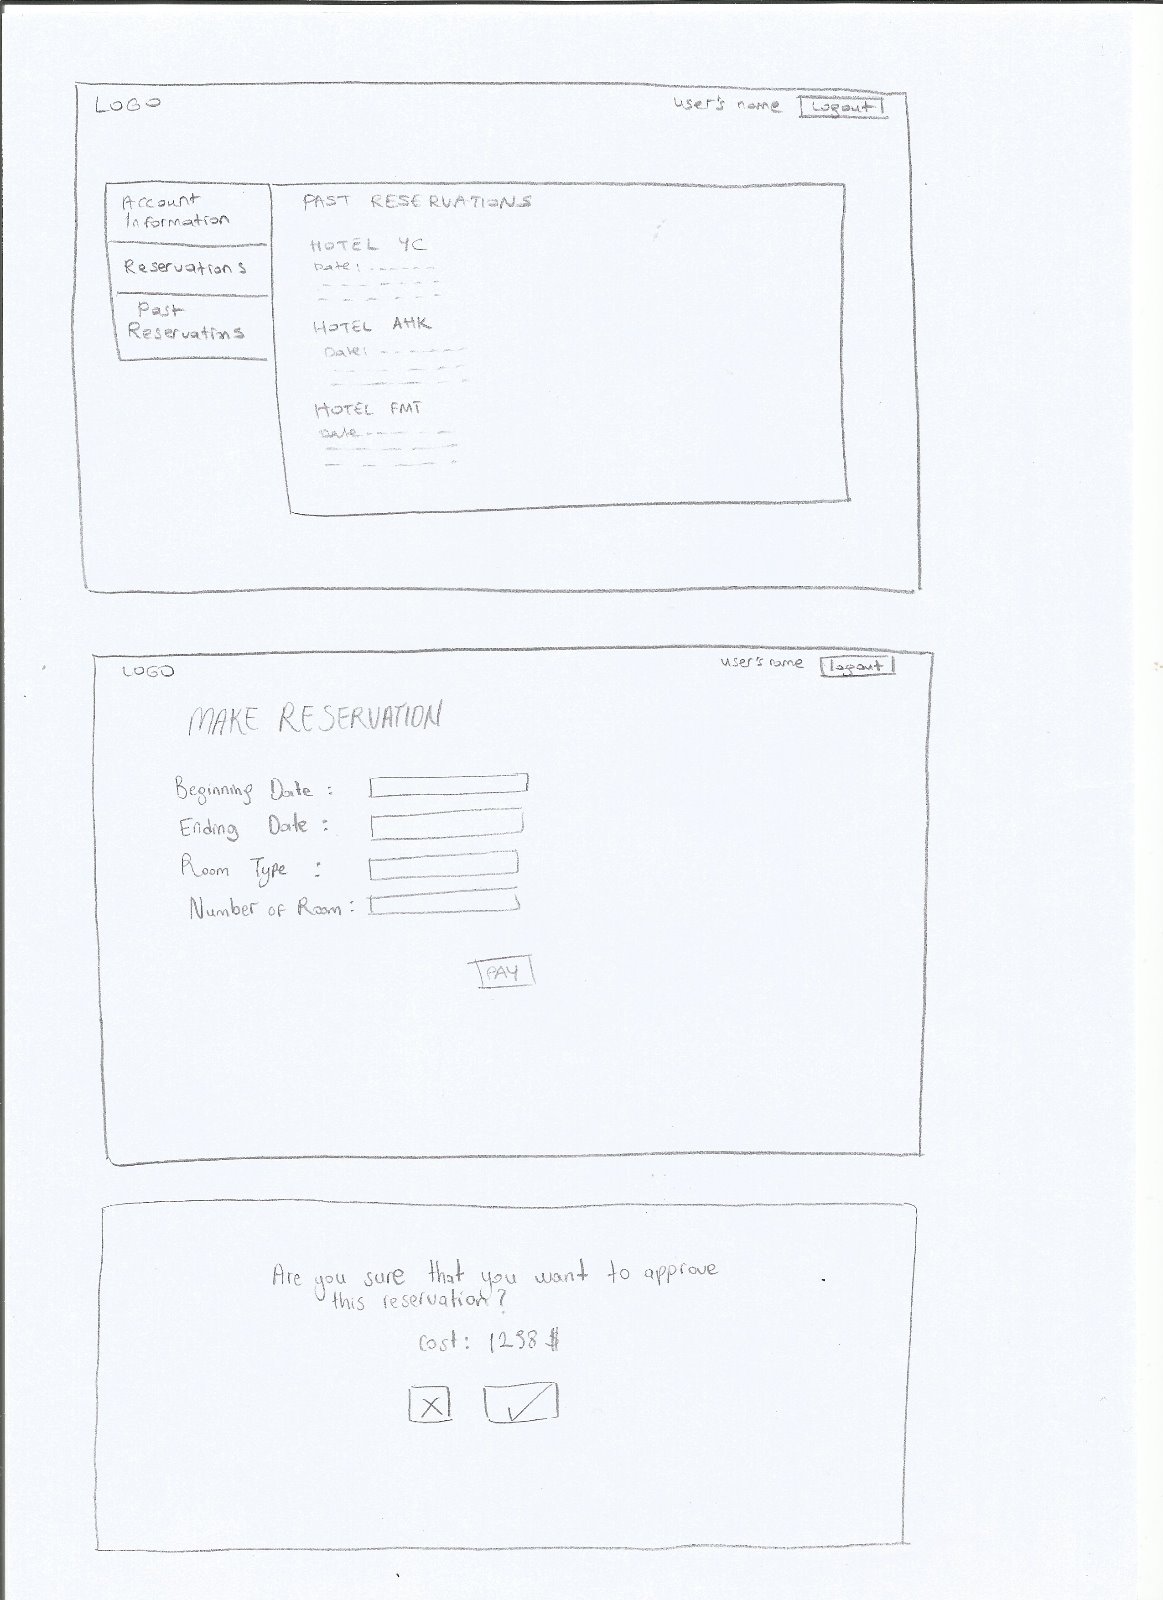 LOGO
user's name
Logout
Account
Information
Reservations
Past
Reservations
PAST RESERVATIONS
HOTEL YC
Date:
HOTEL AHK
Date:
HOTEL FMT
Date
LOGO
user's name
logout
MAKE RESERVATION
Beginning Date :
Ending Date :
Room Type :
Number of Room :
PAY
Are you sure that you want to approve
this reservation?
Cost: 1298 $
X ✓